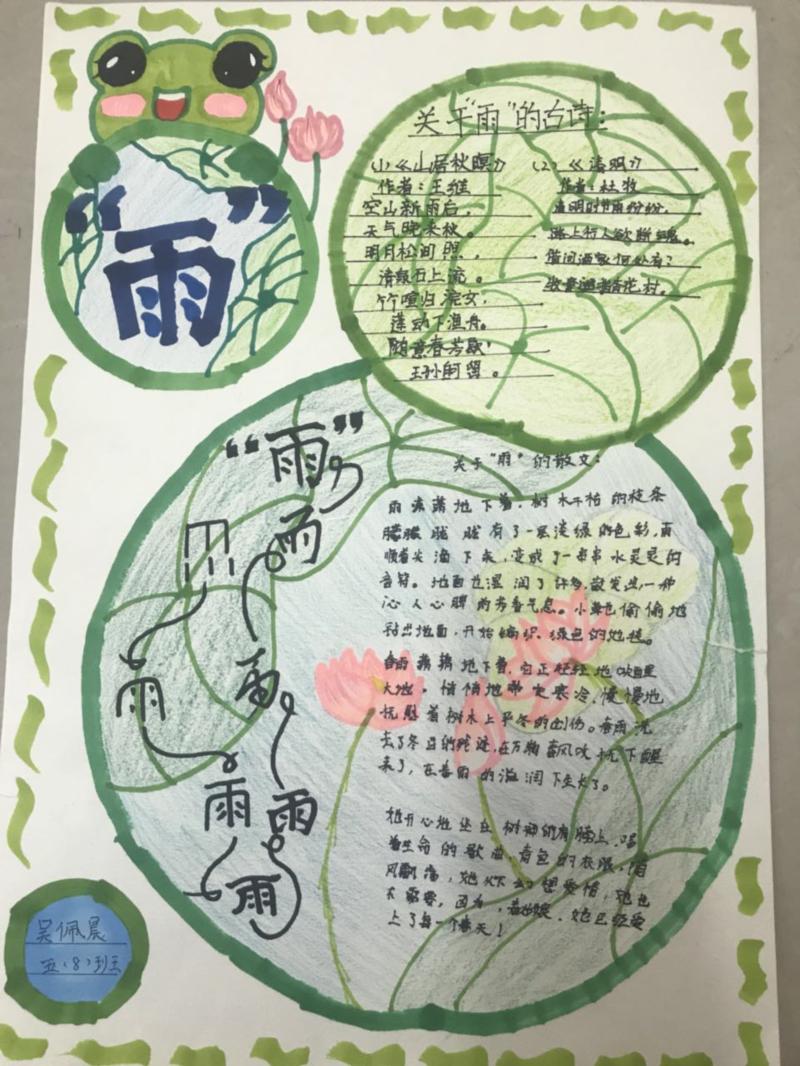 “雨”
关于“雨”的古诗：
(1)《山居秋暝》
作者：王维
空山新雨后，
天气晚来秋。
明月松间照，
清泉石上流。
竹喧归浣女，
莲动下渔舟。
随意春芳歇，
王孙自可留。
(2)《清明》
作者：杜牧
清明时节雨纷纷，
路上行人欲断魂。
借问酒家何处有？
牧童遥指杏花村。
“雨”
雨
雨
雨
雨
雨
雨
雨
关于“雨”的散文：
雨淅淅地下着，树木干枯的枝条
朦朦胧胧有了一层淡绿的色彩，雨
顺着尖滴下来，变成了一串串水灵灵的
音符。地面也湿润了许多，散发出一种
沁人心脾的芳香气息。小草也偷偷地
钻出地面，开始编织绿色的地毯。
春雨 地下着，它正轻轻地吹
大地。悄悄地带走寒冷，慢慢地
抚慰着树木上半冬的创伤。春雨洗
去了冬日的残迹，在万物春风吹 下醒
来了，在春雨的滋润下生长了。
她开心地坐在树 的肩膀上，唱
着生命的歌曲，青色的衣服，随
风飘荡，她 想爱情，她也
不需要，因为， 她已经爱
上了每一个春天！
吴佩晨
五（8）班